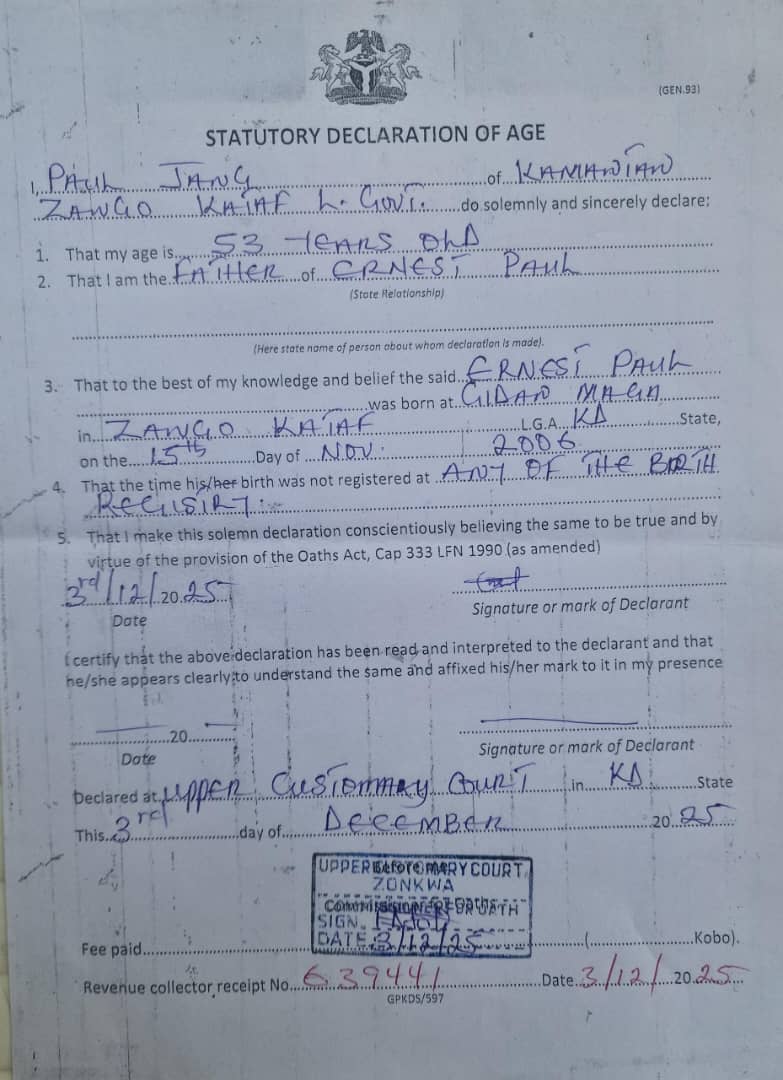 (GEN.93)
STATUTORY DECLARATION OF AGE
I, PAUL JANG of KAMANTAN
ZANGO KATAF L. GOVT. do solemnly and sincerely declare:
1. That my age is 53 YEARS OLD
2. That I am the FATHER of ERNEST PAUL
(State Relationship)
(Here state name of person about whom declaration is made).
3. That to the best of my knowledge and belief the said ERNEST PAUL
was born at GIDAN MAGA
in ZANGO KATAF L.G.A. KD State,
on the 15th Day of NOV. 2006
4. That the time his/her birth was not registered at ANY OF THE BIRTH
REGISTRY.
5. That I make this solemn declaration conscientiously believing the same to be true and by
virtue of the provision of the Oaths Act, Cap 333 LFN 1990 (as amended)
3rd/12/2025
Date
Signature or mark of Declarant
I certify that the above declaration has been read and interpreted to the declarant and that
he/she appears clearly to understand the same and affixed his/her mark to it in my presence
20
Date
Signature or mark of Declarant
Declared at UPPER CUSTOMMARY COURT in KD State
This 3rd day of DECEMBER 2025
UPPER CUSTOMARY COURT
ZONKWA
COMMISSIONER FOR OATH
SIGN.
DATE 3/12/25
Fee paid ( Kobo).
Revenue collector receipt No. 639441 Date 3/12/2025
GPKDS/597